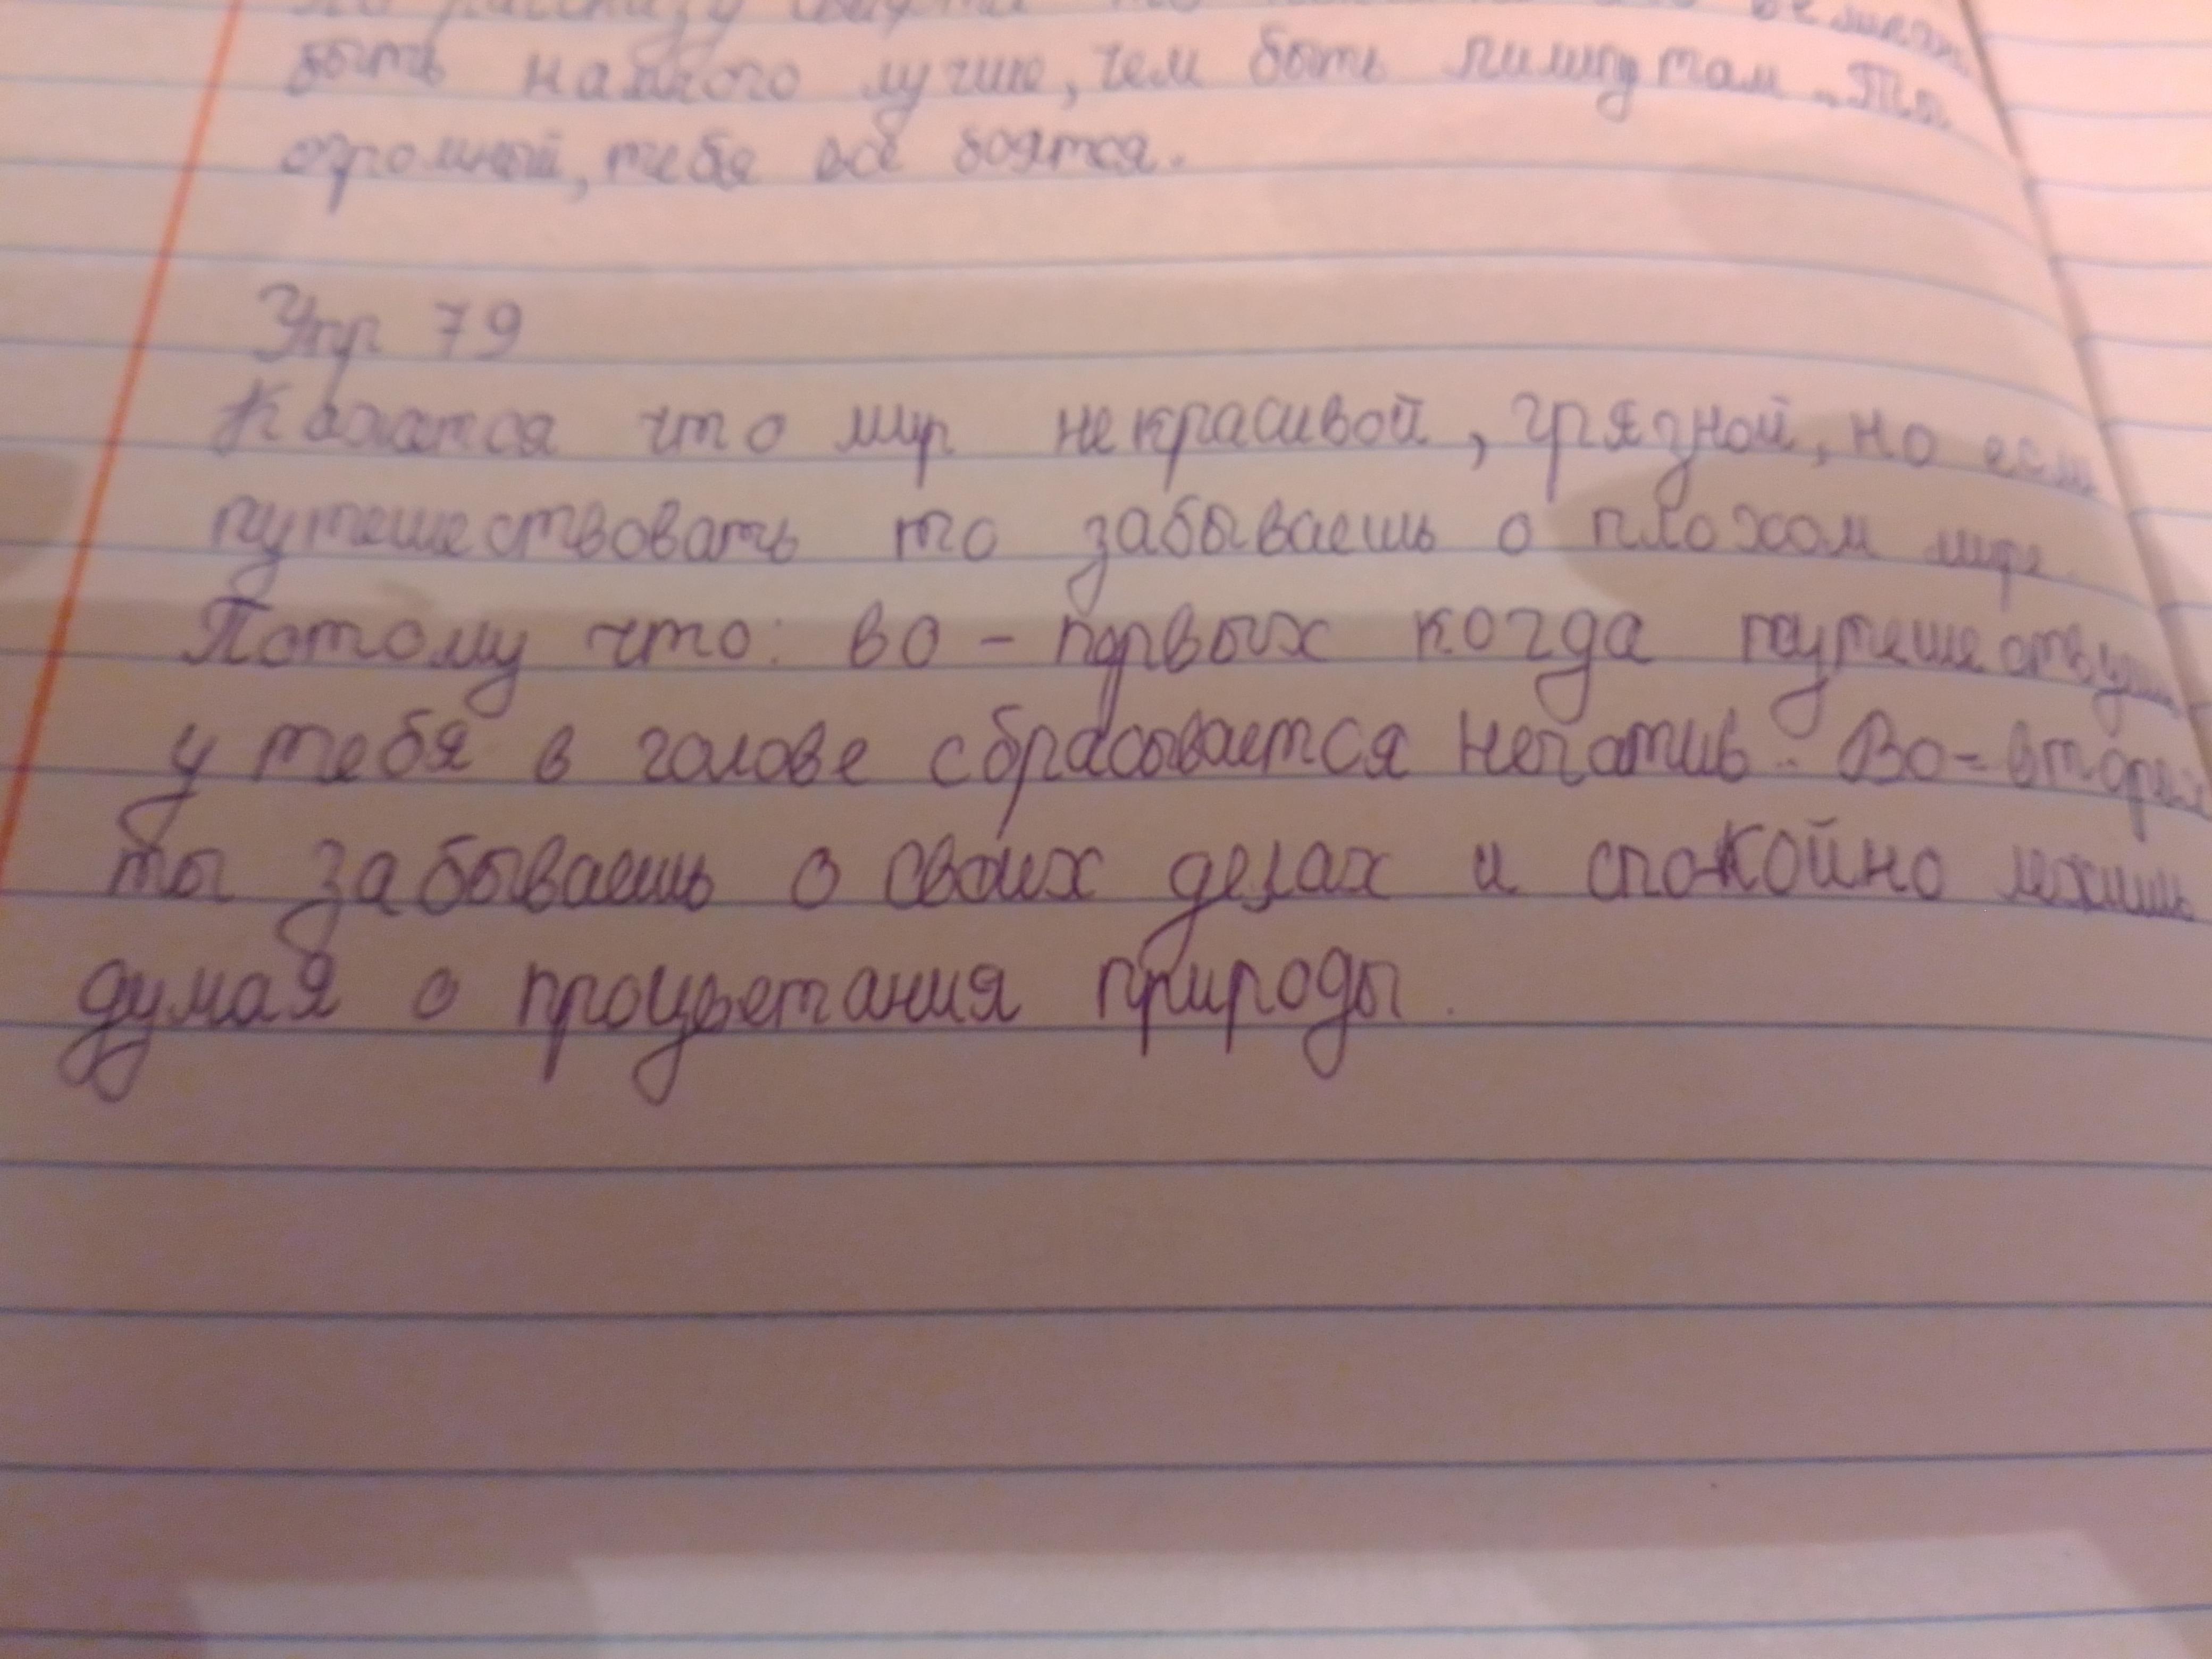 быть намного лучше, чем быть лилипутам. Ты
огромной, тебя все боятся.
Упр 79
Кажатся что мир некрасивой, грязной, но если
путешествовать то забываешь о плохом мире.
Потому что: во-первых когда путешествуешь
у тебя в голове сбрасывается негатив. Во-вторых
ты забываешь о своих делах и спокойно лежишь
думая о процветания природы.